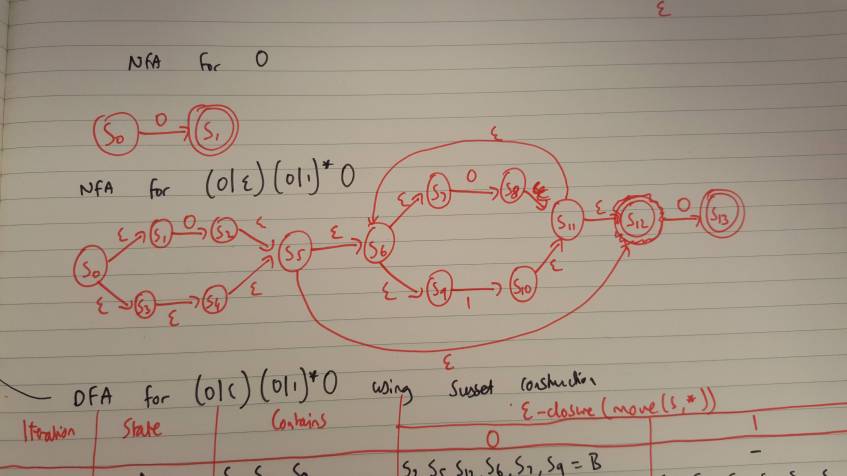 ε
NFA for 0
S0 0 S1
ε
NFA for (0|ε)(0|1)*0
ε S7 0 S8 ε
ε S1 0 S2 ε
S0 S5 ε S6 S11 ε S12 0 S13
ε S3 ε S4 ε
ε S9 1 S10 ε
ε
DFA for (0|ε)(0|1)*0 using Susset construction
Iteration State Contains ε-closure(move(S,*))
0 1
S2 S5 S12 S6, S7, S9 = B -